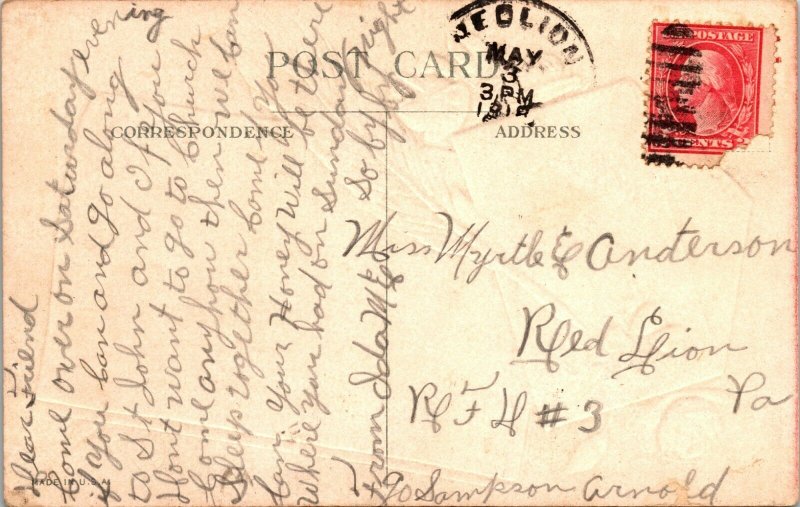 POST CARD
CORRESPONDENCE
ADDRESS
RED LION
MAY
3
3 PM
POSTAGE
CENTS 2
Miss Myrtle E Anderson
Red Lion
R F D #3 Pa
c/o Sampson Arnold
Dear Friend
Come over on Saturday evening
if you can and go along
to St John and if you
Dont want to go to Church
Come any how then we can
Sleep together Come if you
can, your Honey will be there
Where you had on Sunday night
From Ida M K So by by
MADE IN U.S.A.